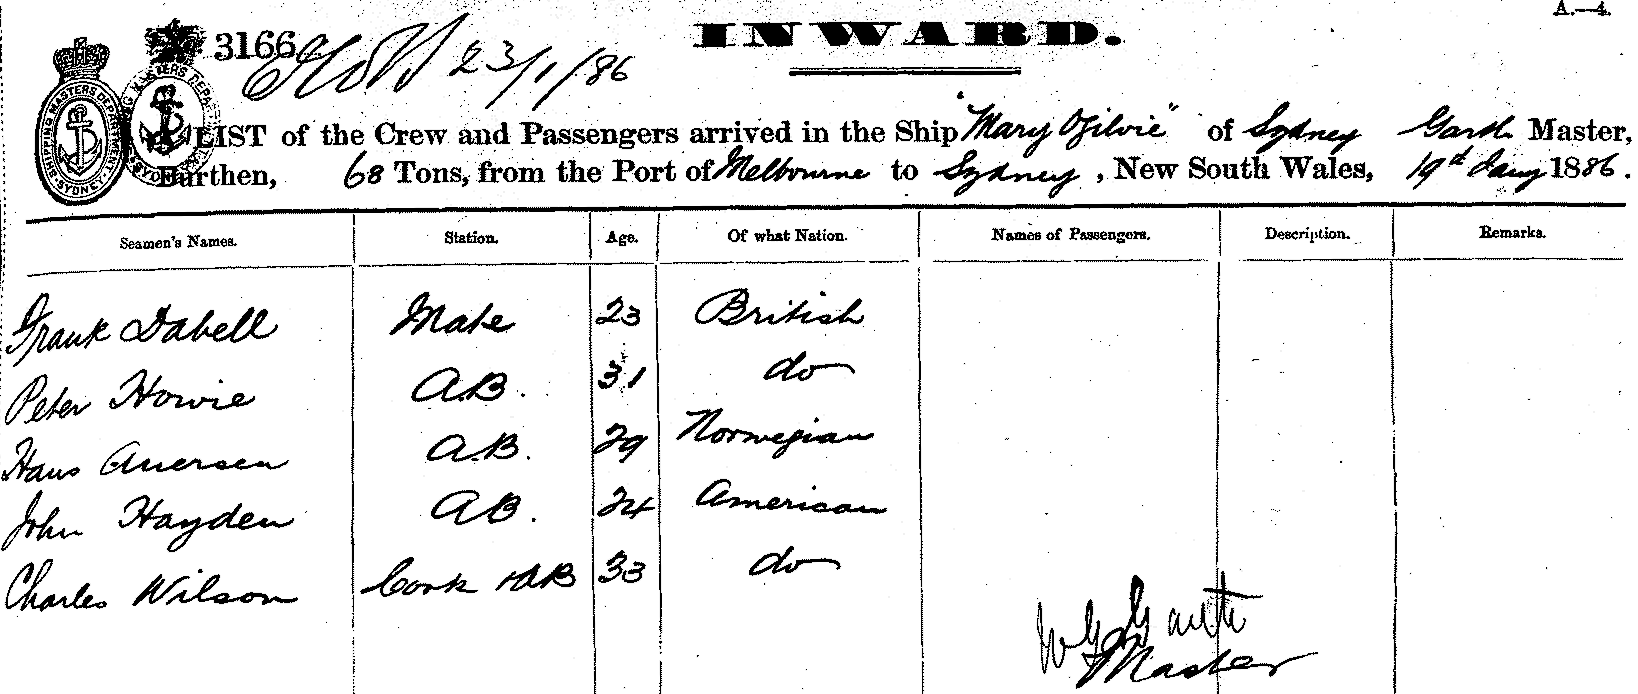 A.—4.
3166 23/1/86 INWARD.
LIST of the Crew and Passengers arrived in the Ship "Mary Ogilvie" of Sydney Garth Master,
Burthen, 68 Tons, from the Port of Melbourne to Sydney, New South Wales, 19th Jany 1886.
Seamen's Names. Station. Age. Of what Nation. Names of Passengers. Description. Remarks.
Frank Dabell Mate 23 British
Peter Howie A.B. 31 do
Hans A.B. 29 Norwegian
John Hayden AB. 24 American
Charles Wilson Cook & AB 33 do
W G Garth
Master
SHIPPING MASTERS DEPARTMENT SYDNEY